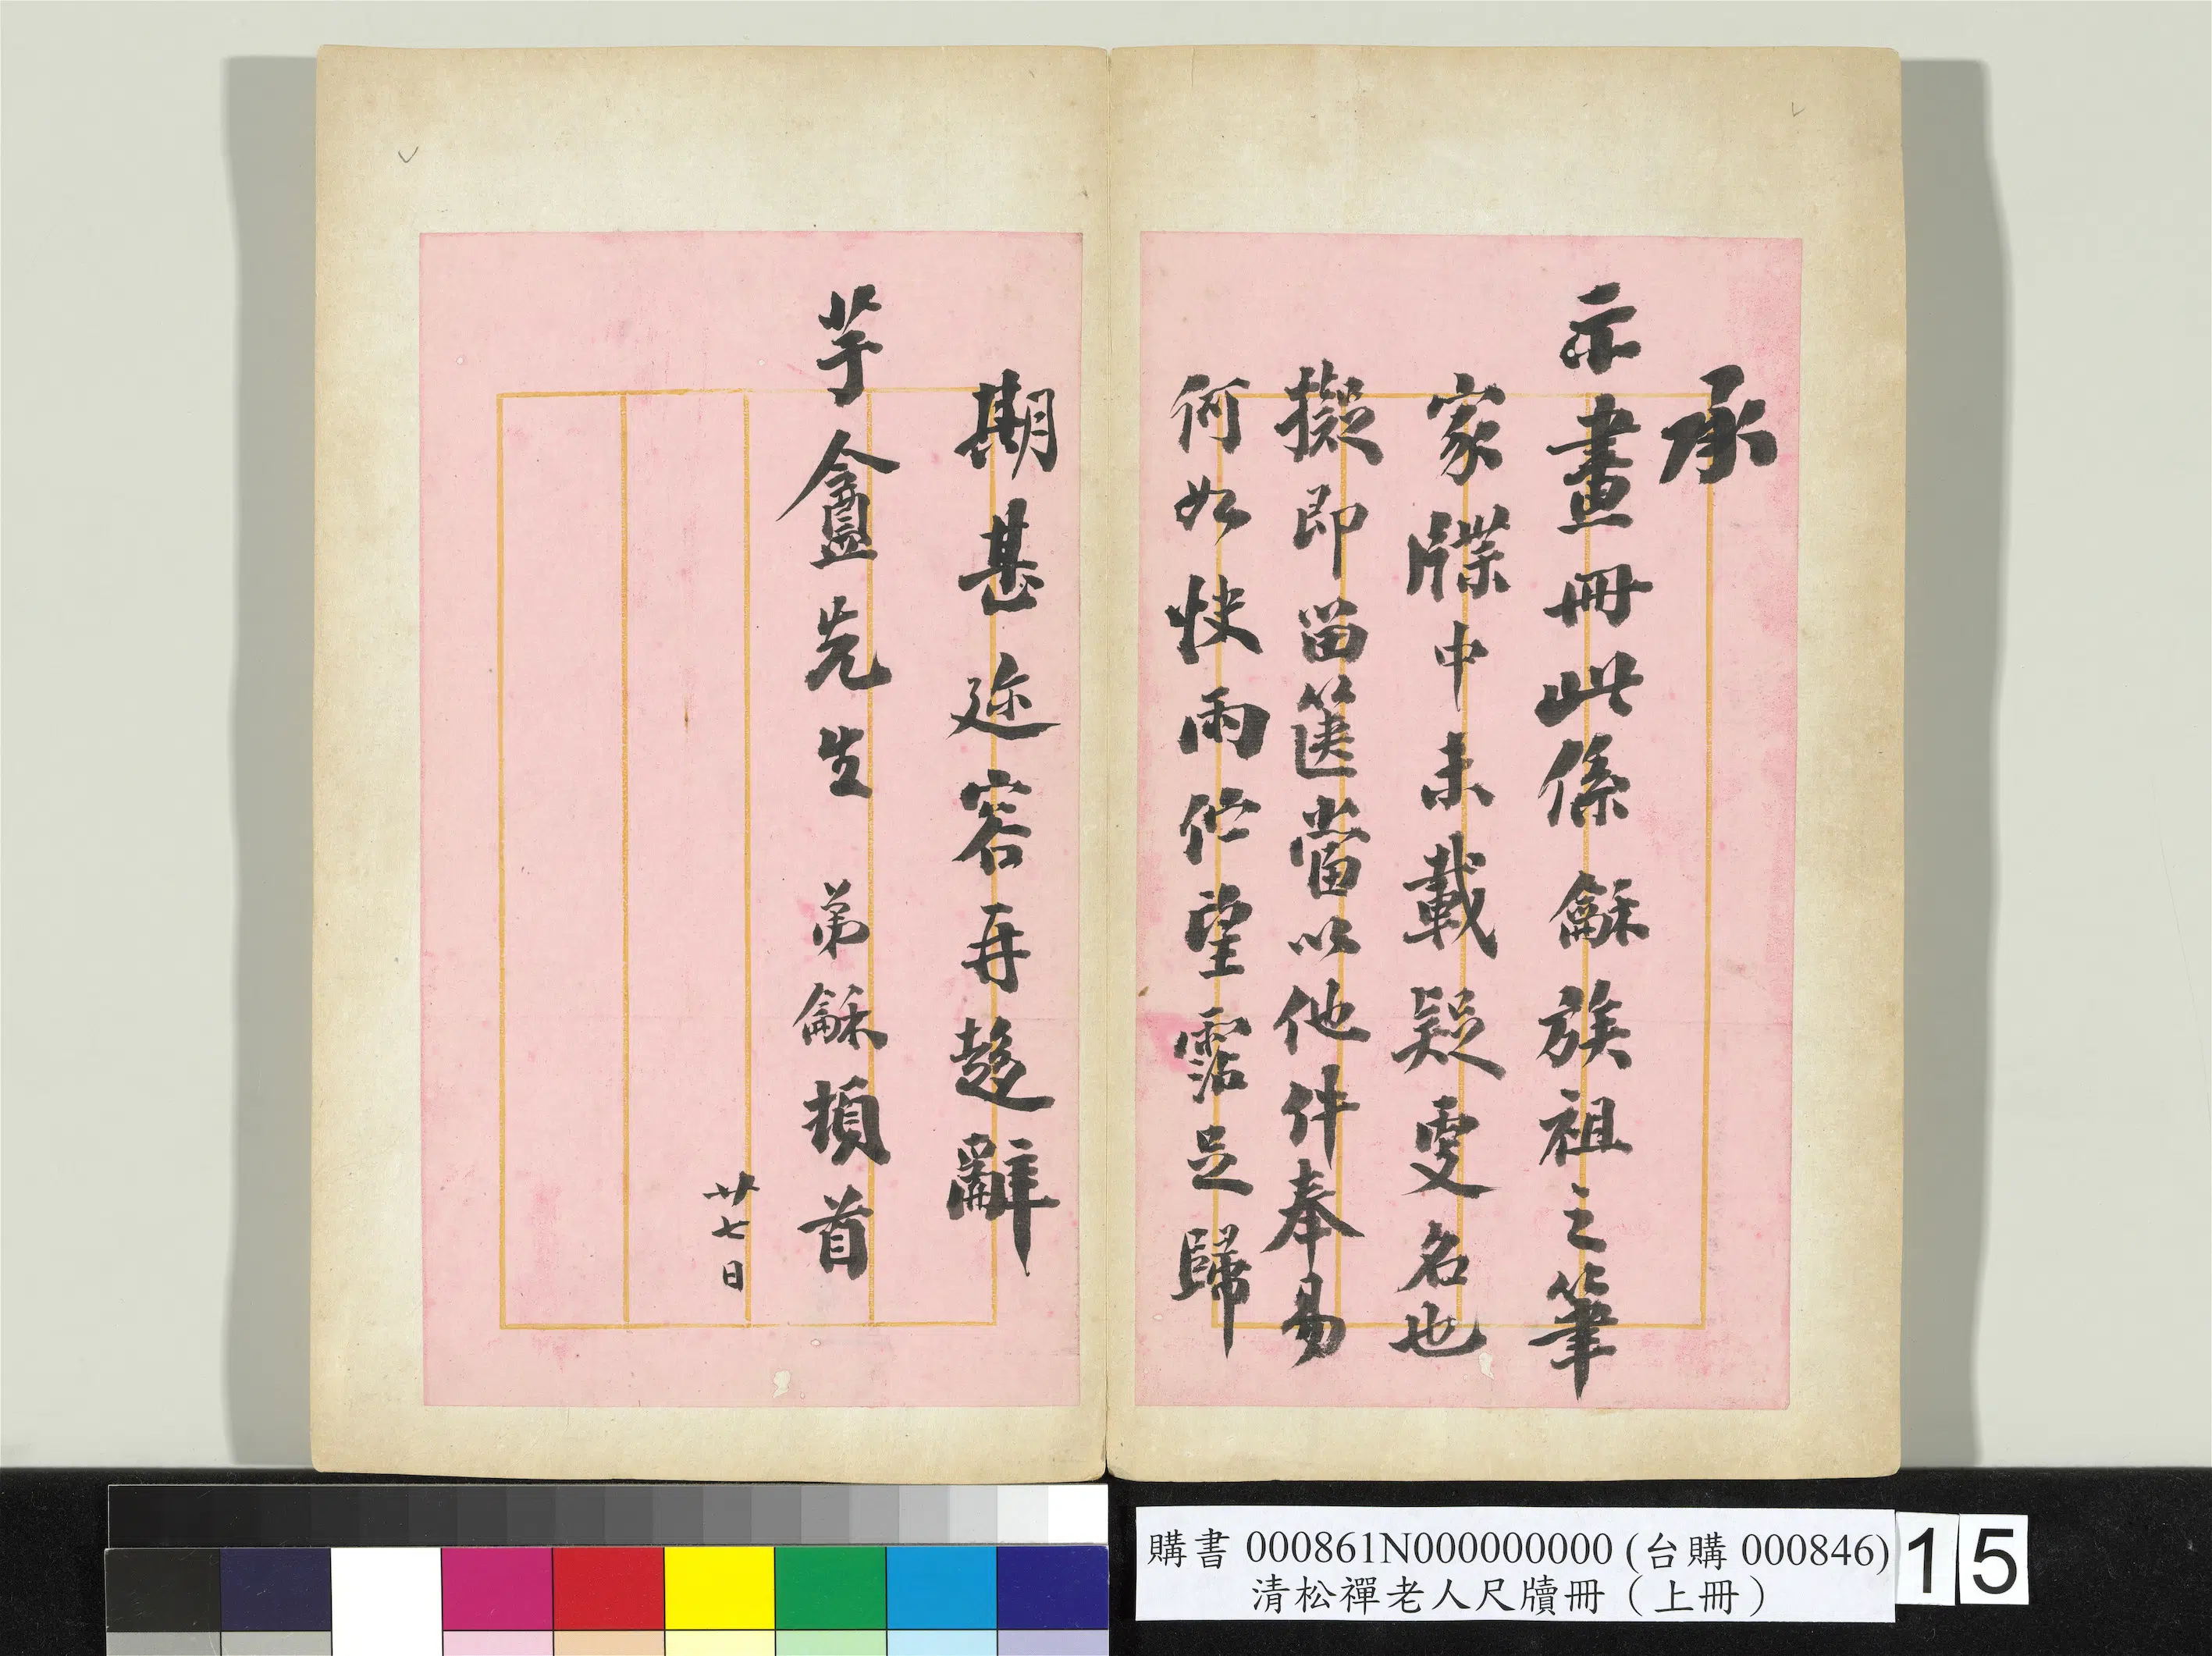 承
示畫冊此係龢族祖之筆
家牒中未載疑更名也
擬即留篋當以他件奉易
何如快雨佇望霑足歸
期甚迩容再趨辭
芋盦先生 弟龢頓首
廿七日
購書 000861N000000000 (台購 000846)
清松禪老人尺牘冊（上冊）
15